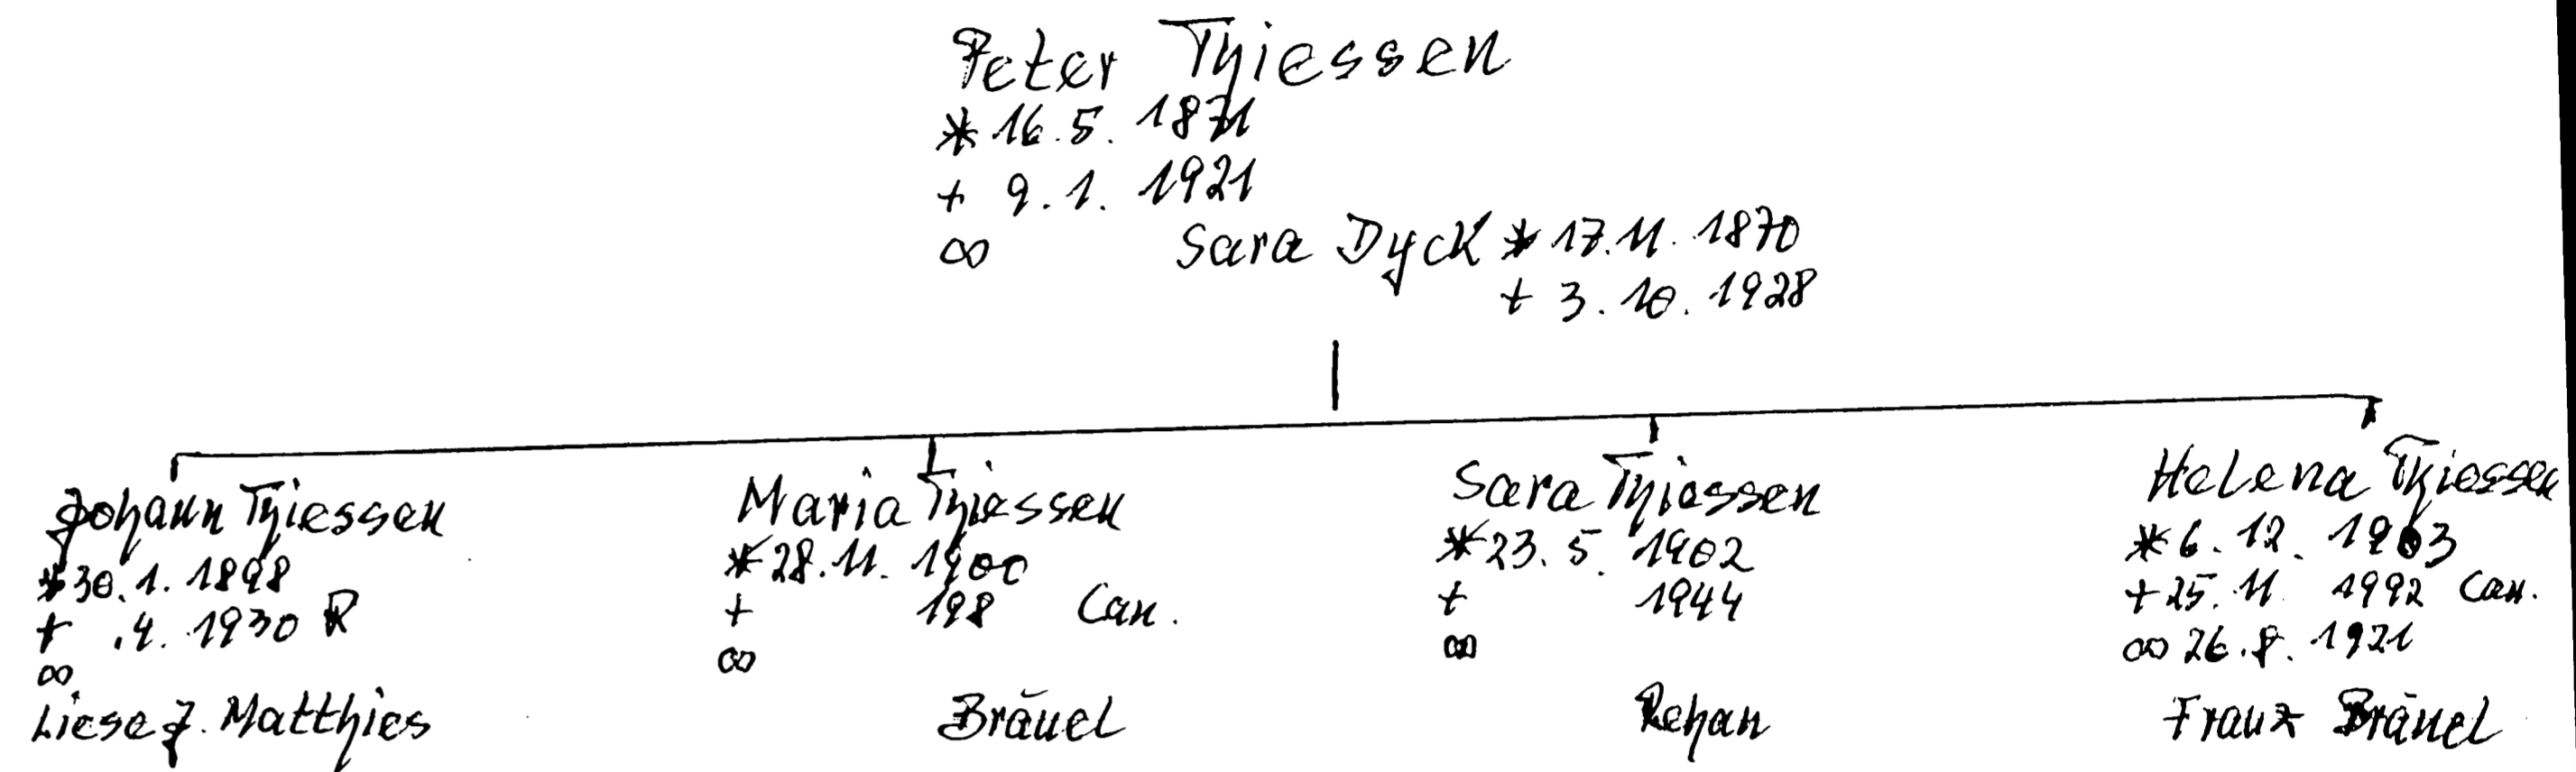 Peter Thiessen
* 16. 5. 1871
+ 9. 1. 1921
∞ Sara Dyck * 17. 11. 1870
+ 3. 10. 1928
Johann Thiessen
* 30. 1. 1898
+ .4. 1930 R
∞
Liese J. Matthies
Maria Thiessen
* 28. 11. 1900
+ 198 Can.
∞
Bräuel
Sara Thiessen
* 23. 5. 1902
+ 1944
∞
Rehan
Helena Thiessen
* 6. 12. 1903
+ 25. 11. 1992 Can.
∞ 26. 8. 1921
Franz Bräuel